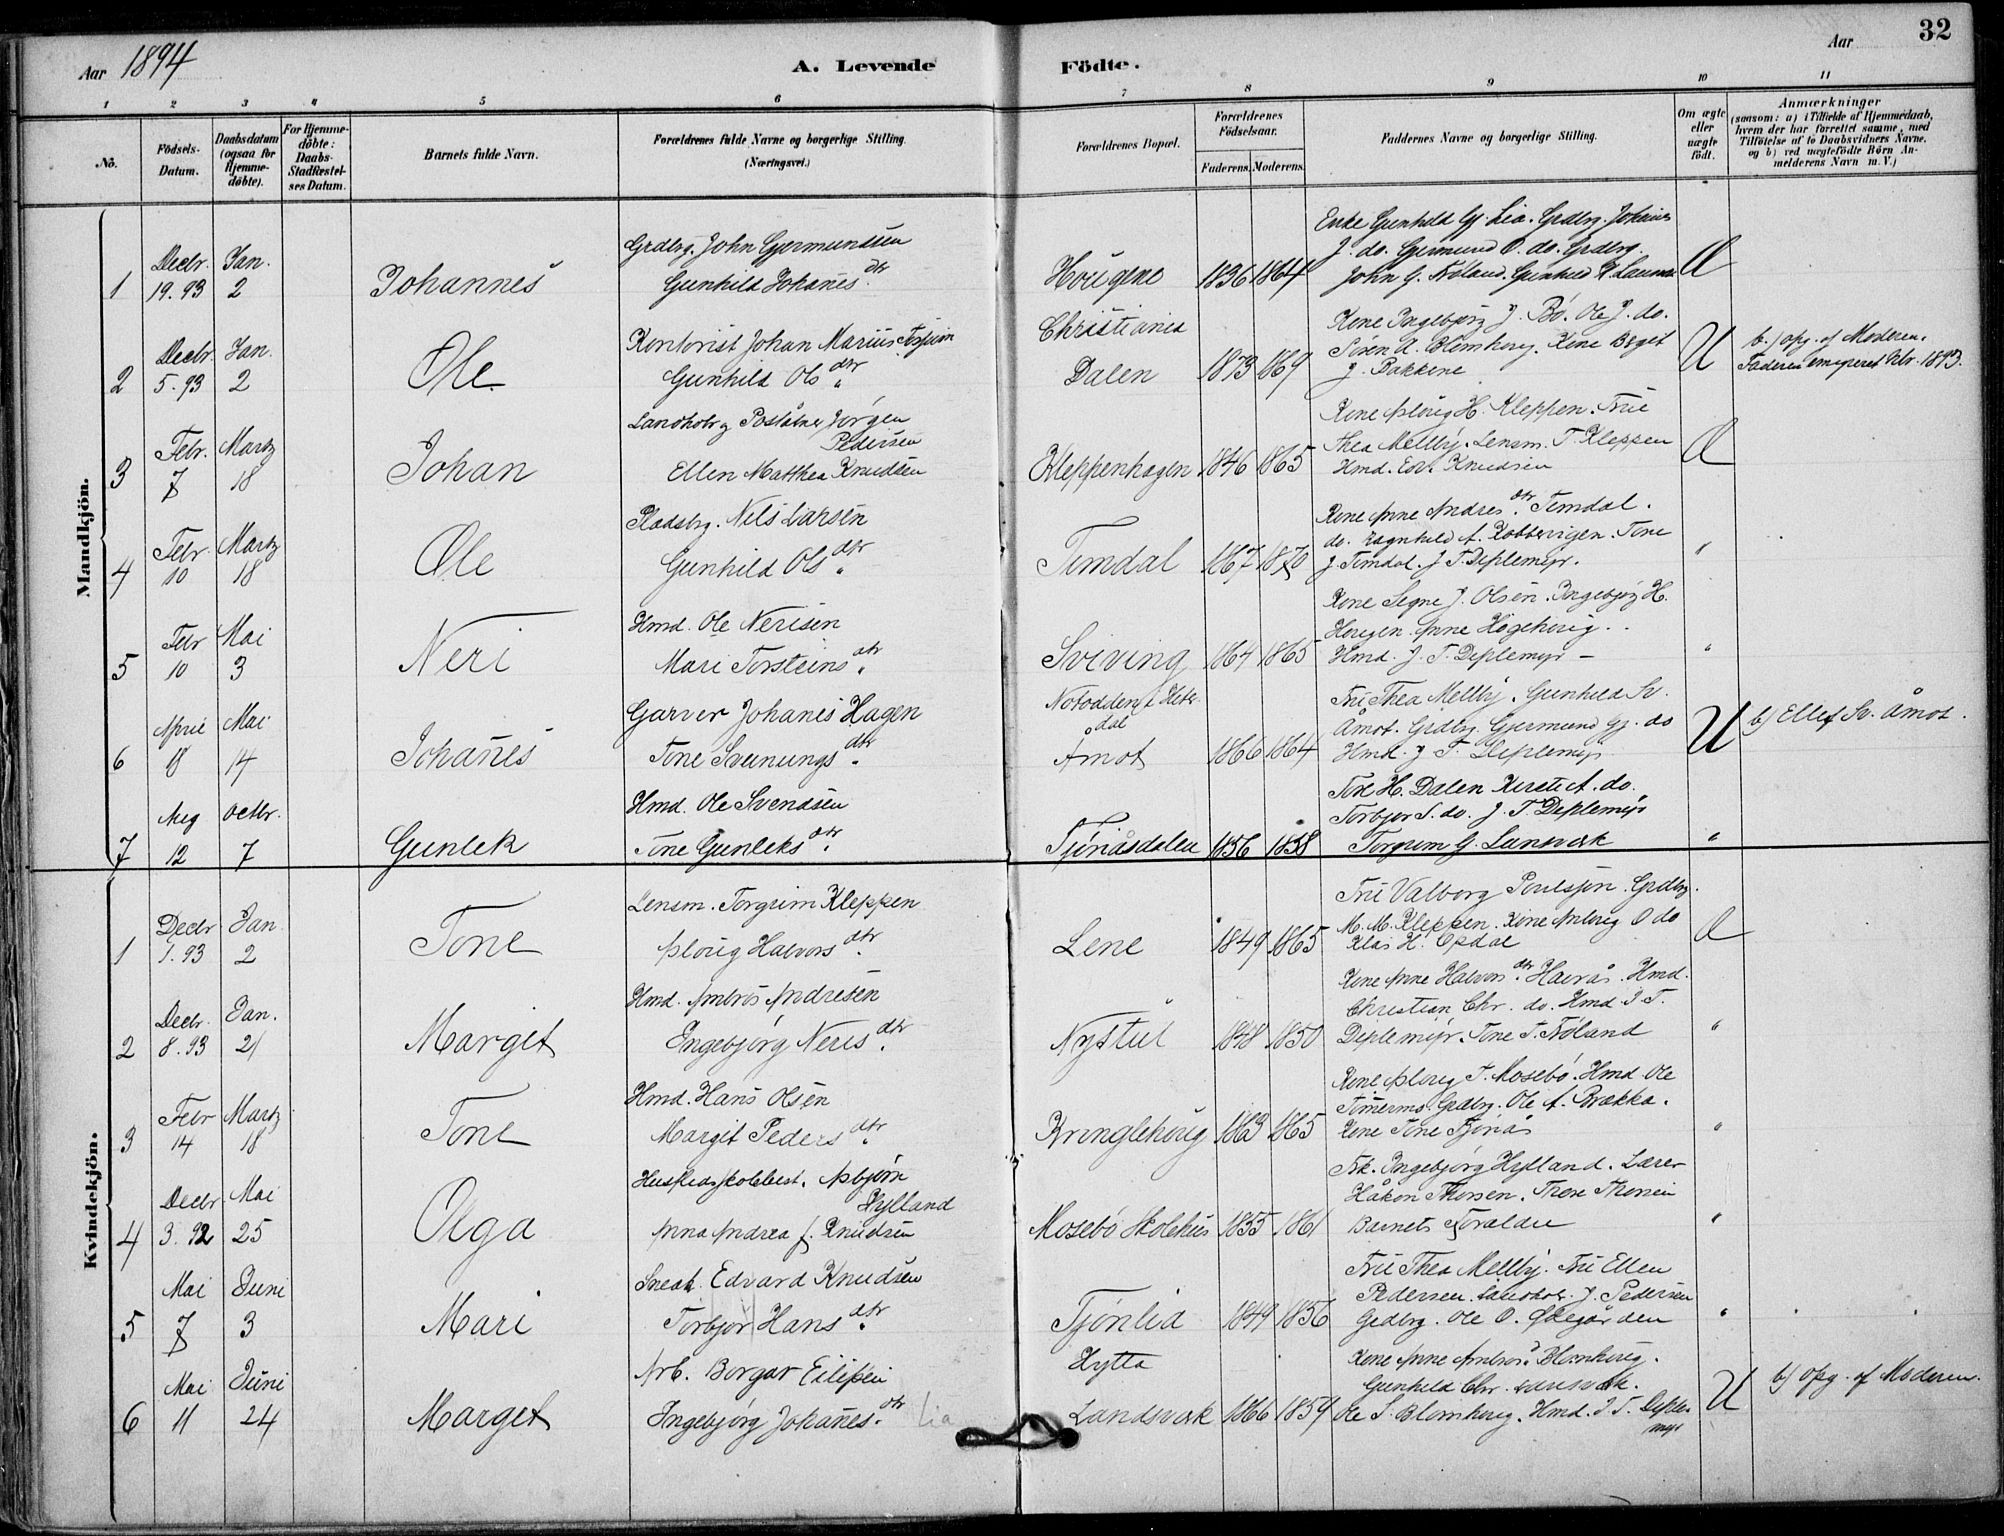 Aar 1894
A. Levende
Födte.
Aar
32
1 2 3 4 5 6 7 8 9 10 11
No.
Födsels-
Datum.
Daabsdatum
(ogsaa for
Hjemme-
döbte).
For Hjemme-
döbte:
Daabs-
Stadfæstel-
ses Datum.
Barnets fulde Navn.
Forældrenes fulde Navne og borgerlige Stilling.
(Næringsvei.)
Forældrenes Bopæl.
Forældrenes
Födselsaar.
Faderens. Moderens.
Faddernes Navne og borgerlige Stilling.
Om ægte
eller
uægte
födt.
Anmærkninger
(saasom: a) i Tilfælde af Hjemmedaab,
hvem der har forrettet samme, med
Tilföielse af to Daabsvidners Navne,
og b) ved uægtefödte Börn An-
melderens Navn m. V.)
Mandkjön.
1
Decbr. Jan.
19. 93 2
Johannes
Grdbrg. John Gjermundsen
Gunhild Johanes dtr.
Hougene
1836 1864
Enke Gunhild Gj. Lia. Grdbrg. Johanes
J. do. Gjermund O. do. Grdbrg.
John G. Nöland. Gunhild
Æ
2
Decbr. Jan.
5. 93 2
Ole
Kontorist Johan Marius
Gunhild Ols dtr.
Christiania
Dalen
1873 1869
Kone Ingebjörg J. Bö. Ole J. do.
Sören A. Blomhoug. Kone Birget
J. Bakkene
U
b.) opg. af Moderen.
Faderen emigreret Octbr. 1893.
3
Febr. Marts
7 18
Johan
Landhdlr. og Postaabner Jörgen
Pedersen
Ellen Matthea Knudsen
Kleppenhagen
1846 1865
Kone Asloug H. Kleppen. Frue
Thea Mellby. Lensm. T. Kleppen
Hmd. Edv. Knudsen
Æ
4
Febr. Marts
10 18
Ole
Pladsbrg. Nils Larsen
Gunhild Ols dtr.
Timdal
1867 1870
Kone Anne Andres dtr. Timdal.
do. Ragnhild A. Kobbervigen. Tone
J. Timdal. J. T. Deplemyr.
"
5
Febr Mai
10 3
Neri
Hmd. Ole Nerisen
Mari Torsteins dtr.
Sviving
1864 1865
Kone Signe J. Olsen. Ingebjörg H.
Hougen. Anne Högehoug.
Hmd. J. T. Deplemyr –
"
6
April Mai
18 14
Johanes
Garver Johanes Hagen
Tone Svenungs dtr.
Notodden i Hitter
dal
Åmot
1866 1864
Fru Thea Mellby. Gunhild Sv.
Åmot. Grdbrg. Gjermund Gj. do
Hmd. J. T. Deplemyr
U
b) Ellef Sv. Åmot.
7
Aug Octbr.
12 7
Gunlek
Hmd. Ole Svendsen
Tone Gunleks dtr.
Tjönåsdalen
1856 1858
Tone H. Dalen Kirsti A. do.
Torbjör S. do. J. T. Deplemyr
Torgrim G. Lunsvæk
"
Kvindekjön.
1
Decbr Jan.
1. 93 2
Tone
Lensm. Torgrim Kleppen
Asloug Halvors dtr.
Lene
1849 1865
Fru Valborg Poulsson. Grdbrg.
M. M. Kleppen. Kone Asloug O do
Klas H. Opdal
Æ
2
Decbr. Jan.
8. 93 21
Margit
Hmd. Ambros Andresen
Engebjörg Neris dtr.
Nystul
1848 1850
Kone Anne Halvors dtr. Haurås. Hmd.
Christian Chr. do. Hmd. J. T.
Deplemyr. Tone T. Nöland
"
3
Febr Marts
14 18
Tone
Hmd. Hans Olsen
Margit Peders dtr.
Kringlehoug
1863 1865
Kone Asloug T. Mosebö. Hmd Ole
Timerms. Grdbrg. Ole A. Brække.
Kone Tone Tjönås
"
4
Decbr Mai
3. 92 25
Olga
Husflidsskolebest. Asbjörn
Hylland
Anna Andrea f. Knudsen
Mosebö Skolehus
1855 1861
Frk. Ingebjörg Hylland. Lærer
Håkon Thorsen. Therese Thorsen
Barnets Foraldre
"
5
Mai Juni
7 3
Mari
Sned. Edvard Knudsen
Torbjör Hans dtr.
Tjönlid
1849 1856
Fru Thea Mellby. Fru Ellen
Pedersen. Landhdlr. J. Pedersen
Grdbrg. Ole O. Ökegården
"
6
Mai Juni
11 24
Marget
Arb. Borgar Eilifsen
Ingebjörg Johanes dtr. Lia
Hytta
Landsvæk
1866 1859
Kone Anne Ambros. Blomhoug.
Gunhild Chr. Lansvæk.
Ole S. Blomhoug. Hmd. J. T. Deple
myr
U
b) opg. af Moderen.